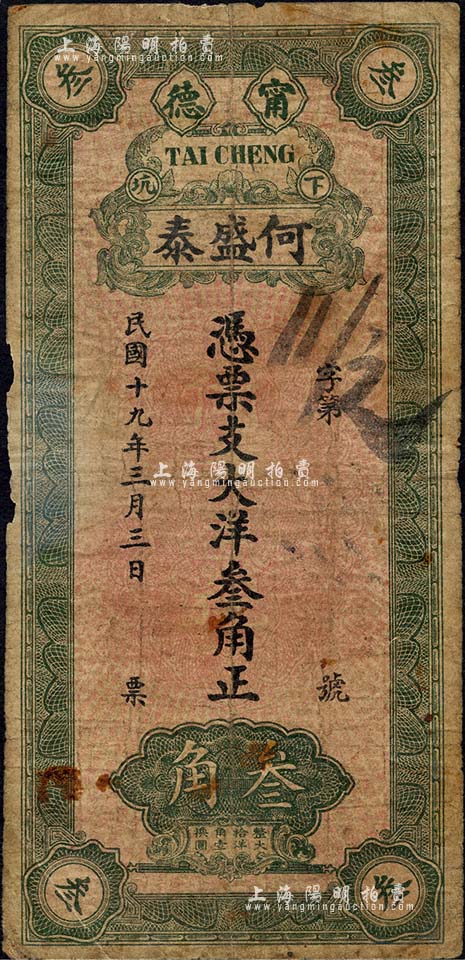 上海陽明拍賣
www.yangmingauction.com
叁
叁
甯德
TAI CHENG
下坑
何盛泰
字第
號
憑票支大洋叁角正
民國十九年三月三日
票
上海陽明拍賣
www.yangmingauction.com
叁角
整拾角換
大洋壹圓
叁
叁
上海陽明拍賣
www.yangmingauction.com